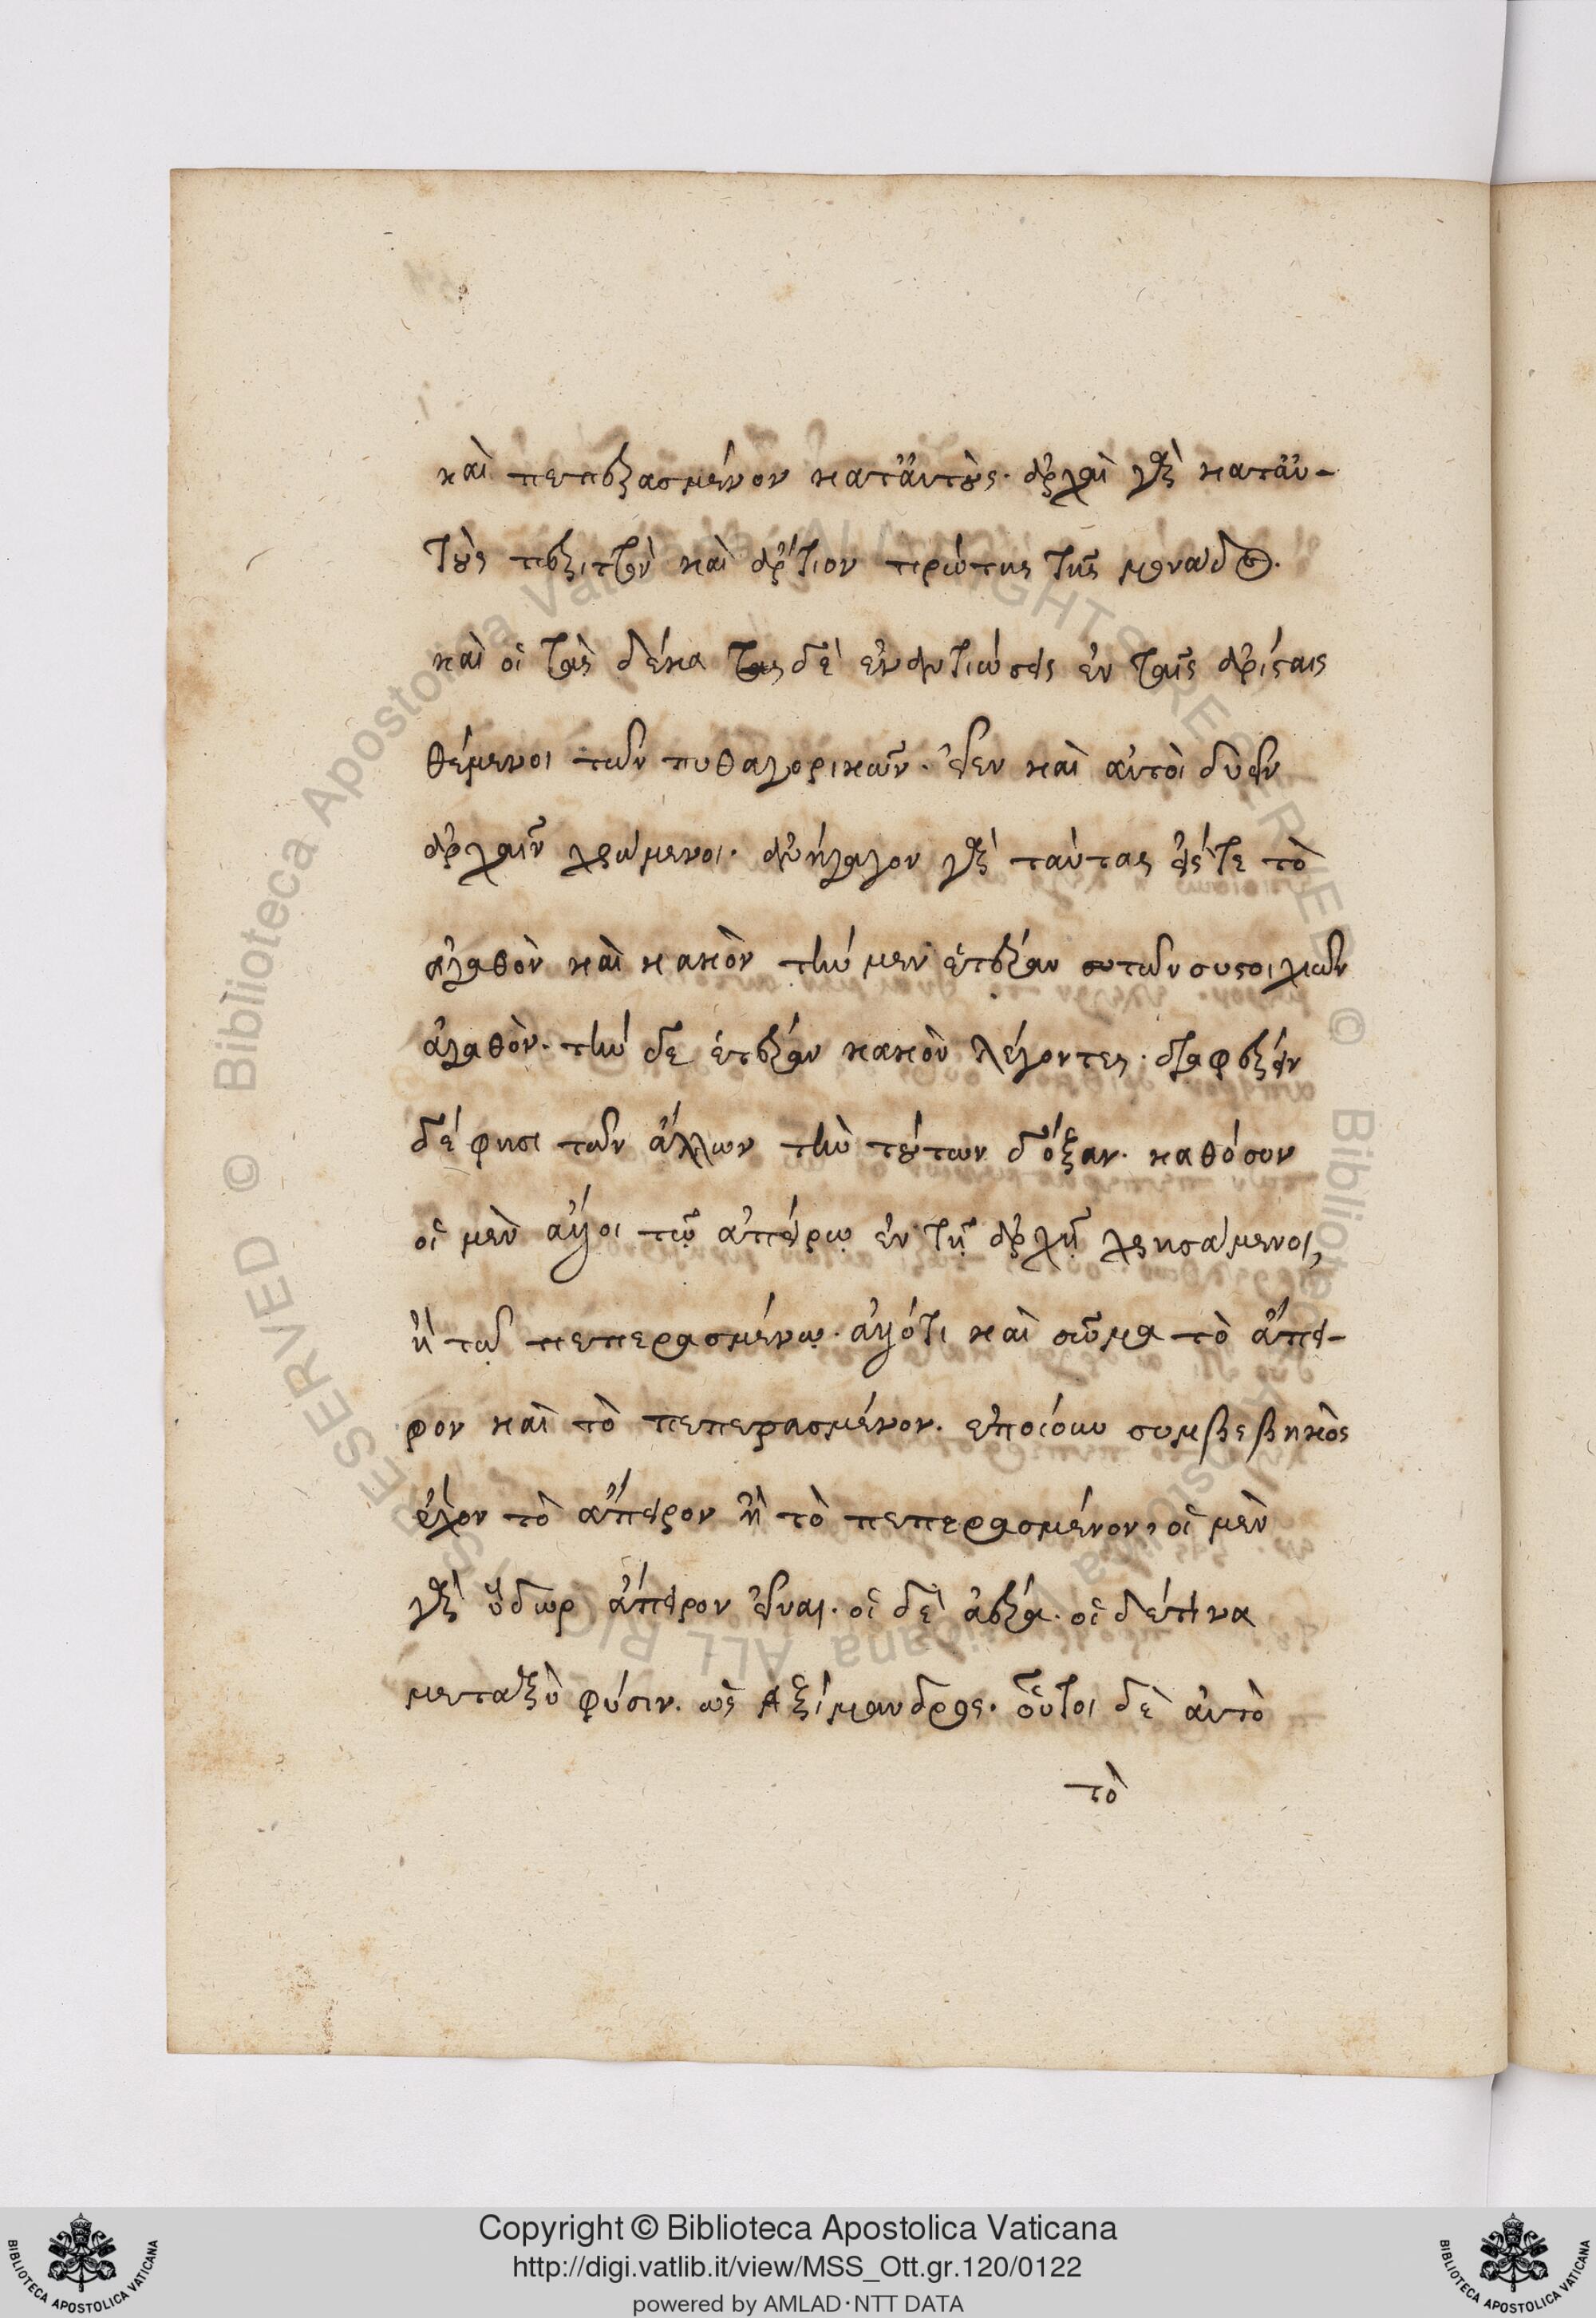 καὶ πεπερασμένον κατ' αὐτούς. ἀρχαὶ γὰρ κατ' αὐ-
τοὺς περιττὸν καὶ ἄρτιον πρώτης τῆς μονάδος.
καὶ οἱ τὰς δέκα τὰς δὲ ἐναντιώσεις ἐν ταῖς ἀρίσταις
θέμενοι τῶν πυθαγορικῶν. καὶ αὐτοὶ δυεῖν
ἀρχαῖν χρώμενοι. ἀνήγαγον γὰρ ταύτας εἴς τε τὸ
ἀγαθὸν καὶ κακὸν τὴν μὲν ἑτέραν τῶν συστοιχιῶν
ἀγαθὸν. τὴν δὲ ἑτέραν κακὸν λέγοντες. διαφέρειν
δέ φησι τῶν ἄλλων τὴν τούτων δόξαν. καθόσον
οἱ μὲν ἄλλοι τῷ ἀπείρῳ ἐν τῇ ἀρχῇ χρησάμενοι,
ἢ τῷ πεπερασμένῳ. ἄλλό τι καὶ σῶμα τὸ ἄπει-
ρον καὶ τὸ πεπερασμένον. ἐποίουν συμβεβηκὸς
ἔχον τὸ ἄπειρον ἢ τὸ πεπερασμένον, οἱ μὲν
γὰρ ὕδωρ ἄπειρον εἶναι. οἱ δὲ ἀέρα. οἱ δέ τινα
μεταξὺ φύσιν. ὡς Ἀξίμανδρος. οὗτοι δὲ αὐτὸ
τὸ
Copyright © Biblioteca Apostolica Vaticana
http://digi.vatlib.it/view/MSS_Ott.gr.120/0122
powered by AMLAD·NTT DATA